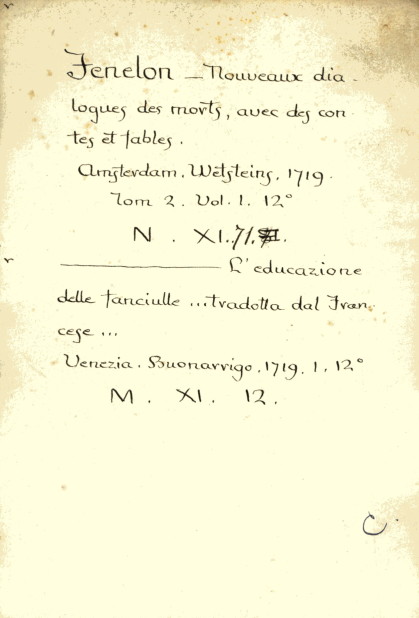 Fenelon — Nouveaux dia-
logues des morts, avec des con-
tes et fables.
Amsterdam. Wetsteins, 1719.
Tom 2. Vol. 1. 12°
N. XI. 71.
——— L'educazione
delle fanciulle ... tradotta dal Fran-
cese ...
Venezia. Buonarrigo. 1719. 1, 12°
M. XI. 12.
C.